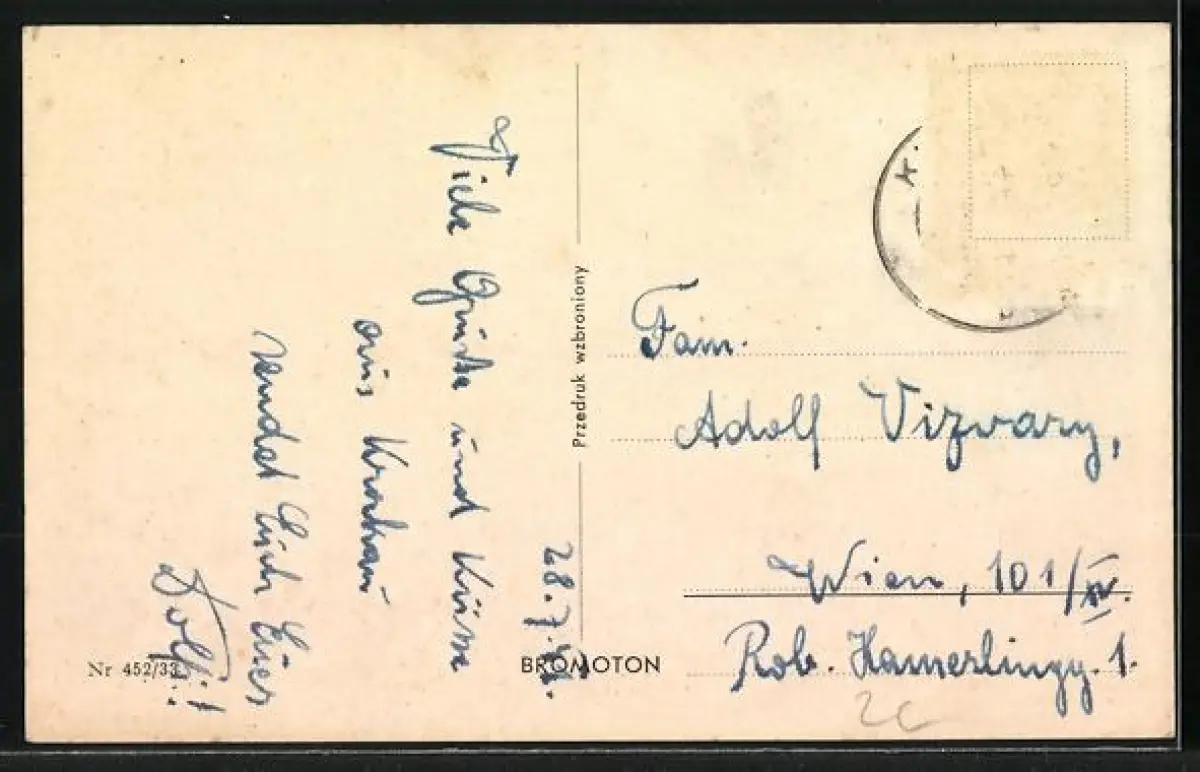 28.7.
Viele Grüße und Küsse
aus Krakau
sendet Euch Euer
Dolfi!
Nr 452/33
Przedruk wzbroniony
BROMOTON
Fam.
Adolf Vizvary,
Wien, 101/IV.
Rob. Hamerlingg. 1.